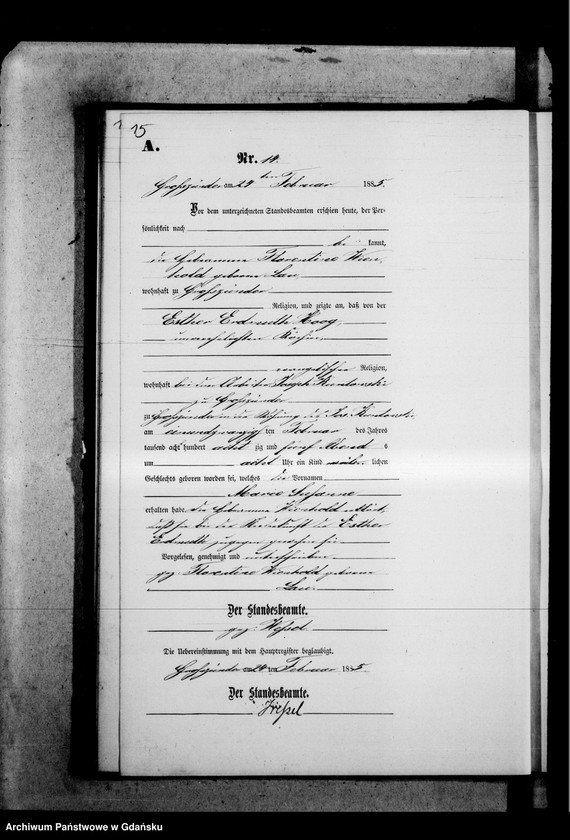 15
A.
Nr. 14.
Großzünder am 24 ten Februar 1885.
Vor dem unterzeichneten Standesbeamten erschien heute, der Per-
sönlichkeit nach
be kannt,
die Hebeamme Florentine Wien
hold geborne Lau
wohnhaft zu Großzünder
Religion, und zeigte an, daß von der
Esther Erdmuth Hoog,
unverehelichten Köchin,
evangelischer Religion,
wohnhaft bei dem Arbeiter Joseph
zu Großzünder
zu Großzünder in der Wohnung des
am einundzwanzig ten Februar des Jahres
tausend acht hundert acht zig und fünf Abend s
um acht Uhr ein Kind weib lichen
Geschlechts geboren worden sei, welches die Vornamen
Marie Susanne
erhalten habe. die Hebeamme Wienhold erklärt,
daß sie bei der Niederkunft der Esther
Erdmuth zugegen gewesen sei
Vorgelesen, genehmigt und unterschrieben
gez. Florentine Wienhold geborne
Lau.
Der Standesbeamte.
gez. Weßel
Die Uebereinstimmung mit dem Hauptregister beglaubigt.
Großzünder am 24 ten Februar 1885.
Der Standesbeamte.
Weßel
Archiwum Państwowe w Gdańsku